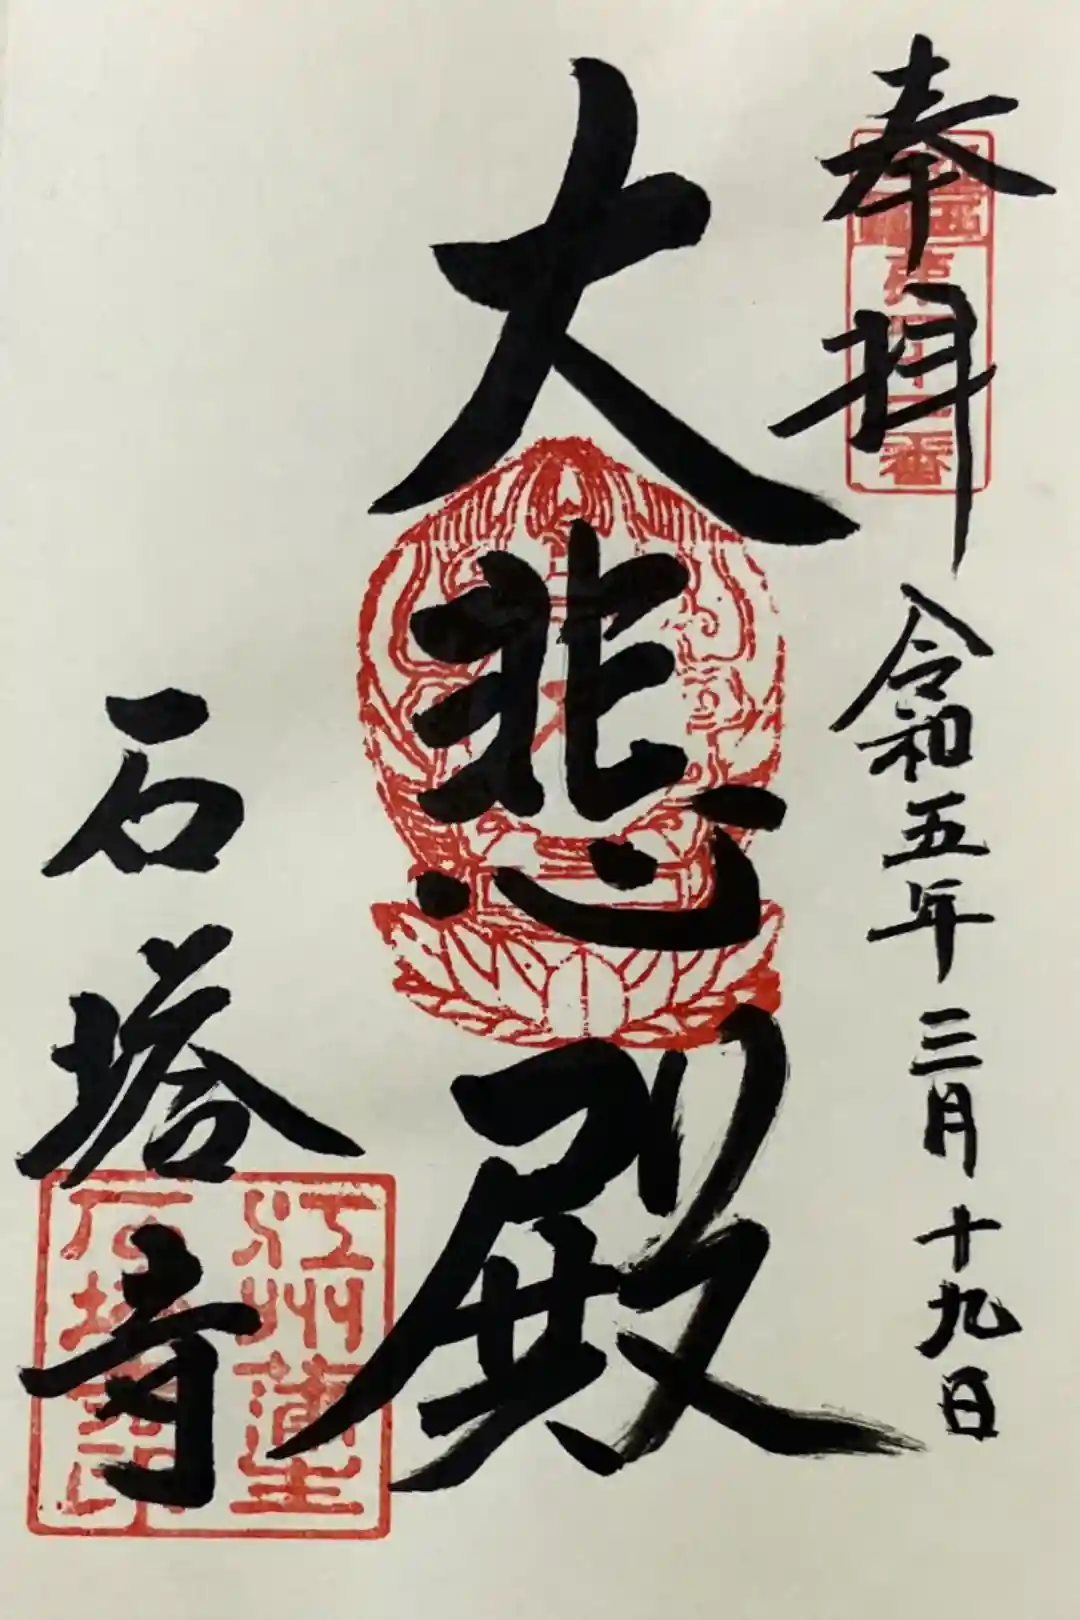 奉拝
令和五年三月十九日
大悲殿
石塔寺
江州蒲生
石塔寺印